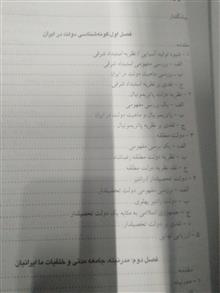 پیشگفتار
فصل اول: گونه‌شناسی دولت در ایران
مقدمه
۱ - شیوه تولید آسیایی / نظریه استبداد شرقی
الف - بررسی مفهومی استبداد شرقی
ب - بررسی ماهیت دولت در ایران
ج - نقدی بر نظریه استبداد شرقی
۲ - نظریه دولت پاتریمونیال
الف - یک بررسی مفهومی
ب - پاتریمونیالیسم و ماهیت دولت در ایران
ج - نقدی بر نظریه پاتریمونیال
۳ - دولت مطلقه
الف - یک بررسی مفهومی
ب - نظریه دولت مطلقه رضاشاه
ج - نقد نظریه دولت مطلقه
۴ - دولت تحصیلدار (رانتیر)
الف - بررسی مفهومی دولت تحصیلدار
ب - دولت رانتیر پهلوی
ج - جمهوری اسلامی به مثابه یک دولت تحصیلدار
د - نقدی بر نظریه دولت تحصیلدار
۵ - ارزیابی نهایی
فصل دوم: مدرنیته، جامعه مدنی و خلقیات ما ایرانیان
مقدمه
۱ - مدرنیته